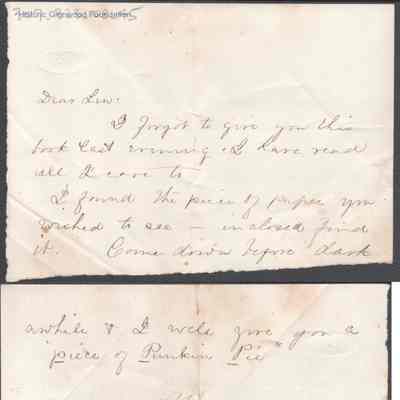 Historic Glenwood Foundation
Dear Lew:
I forgot to give you this
book last evening. I have read
all I care to
I found the piece of paper you
wished to see — inclosed find
it. Come down before dark
awhile & I will give you a
"piece of Punkin Pie"